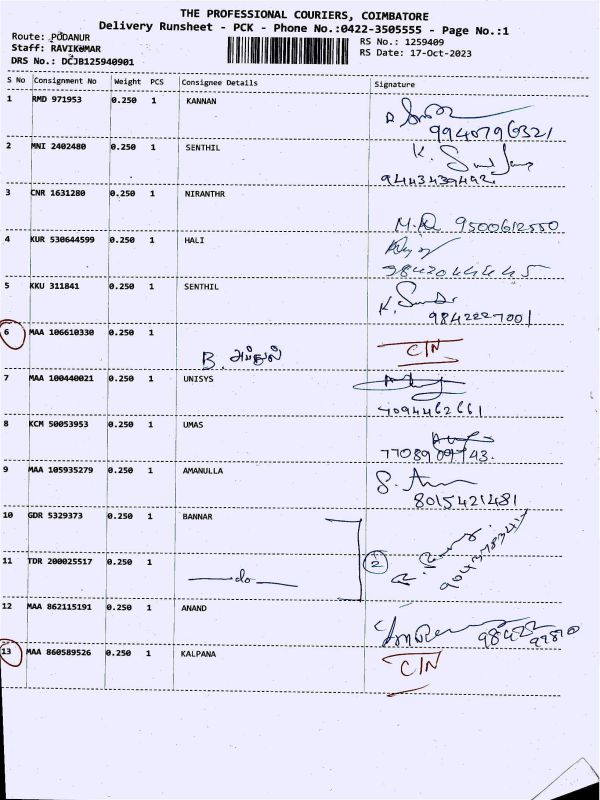 THE PROFESSIONAL COURIERS, COIMBATORE
Delivery Runsheet - PCK - Phone No.:0422-3505555 - Page No.:1
Route: PODANUR
RS No.: 1259409
Staff: RAVIKUMAR
RS Date: 17-Oct-2023
DRS No.: DCJB125940901
S No Consignment No Weight PCS Consignee Details Signature
1 RMD 971953 0.250 1 KANNAN
9940796321
2 MNI 2402480 0.250 1 SENTHIL K.
9443439492
3 CNR 1631280 0.250 1 NIRANTHR
9500612550
4 KUR 530644599 0.250 1 HALI
9842044445
5 KKU 311841 0.250 1 SENTHIL K.
9842227001
6 MAA 106610330 0.250 1 C/N
B. அப்துல்
7 MAA 100440021 0.250 1 UNISYS
7094462661
8 KCM 50053953 0.250 1 UMAS
9 MAA 105935279 0.250 1 AMANULLA S.
8015421481
10 GDR 5329373 0.250 1 BANNAR
11 TDR 200025517 0.250 1 2
do
12 MAA 862115191 0.250 1 ANAND
98422
13 MAA 860589526 0.250 1 KALPANA C/N